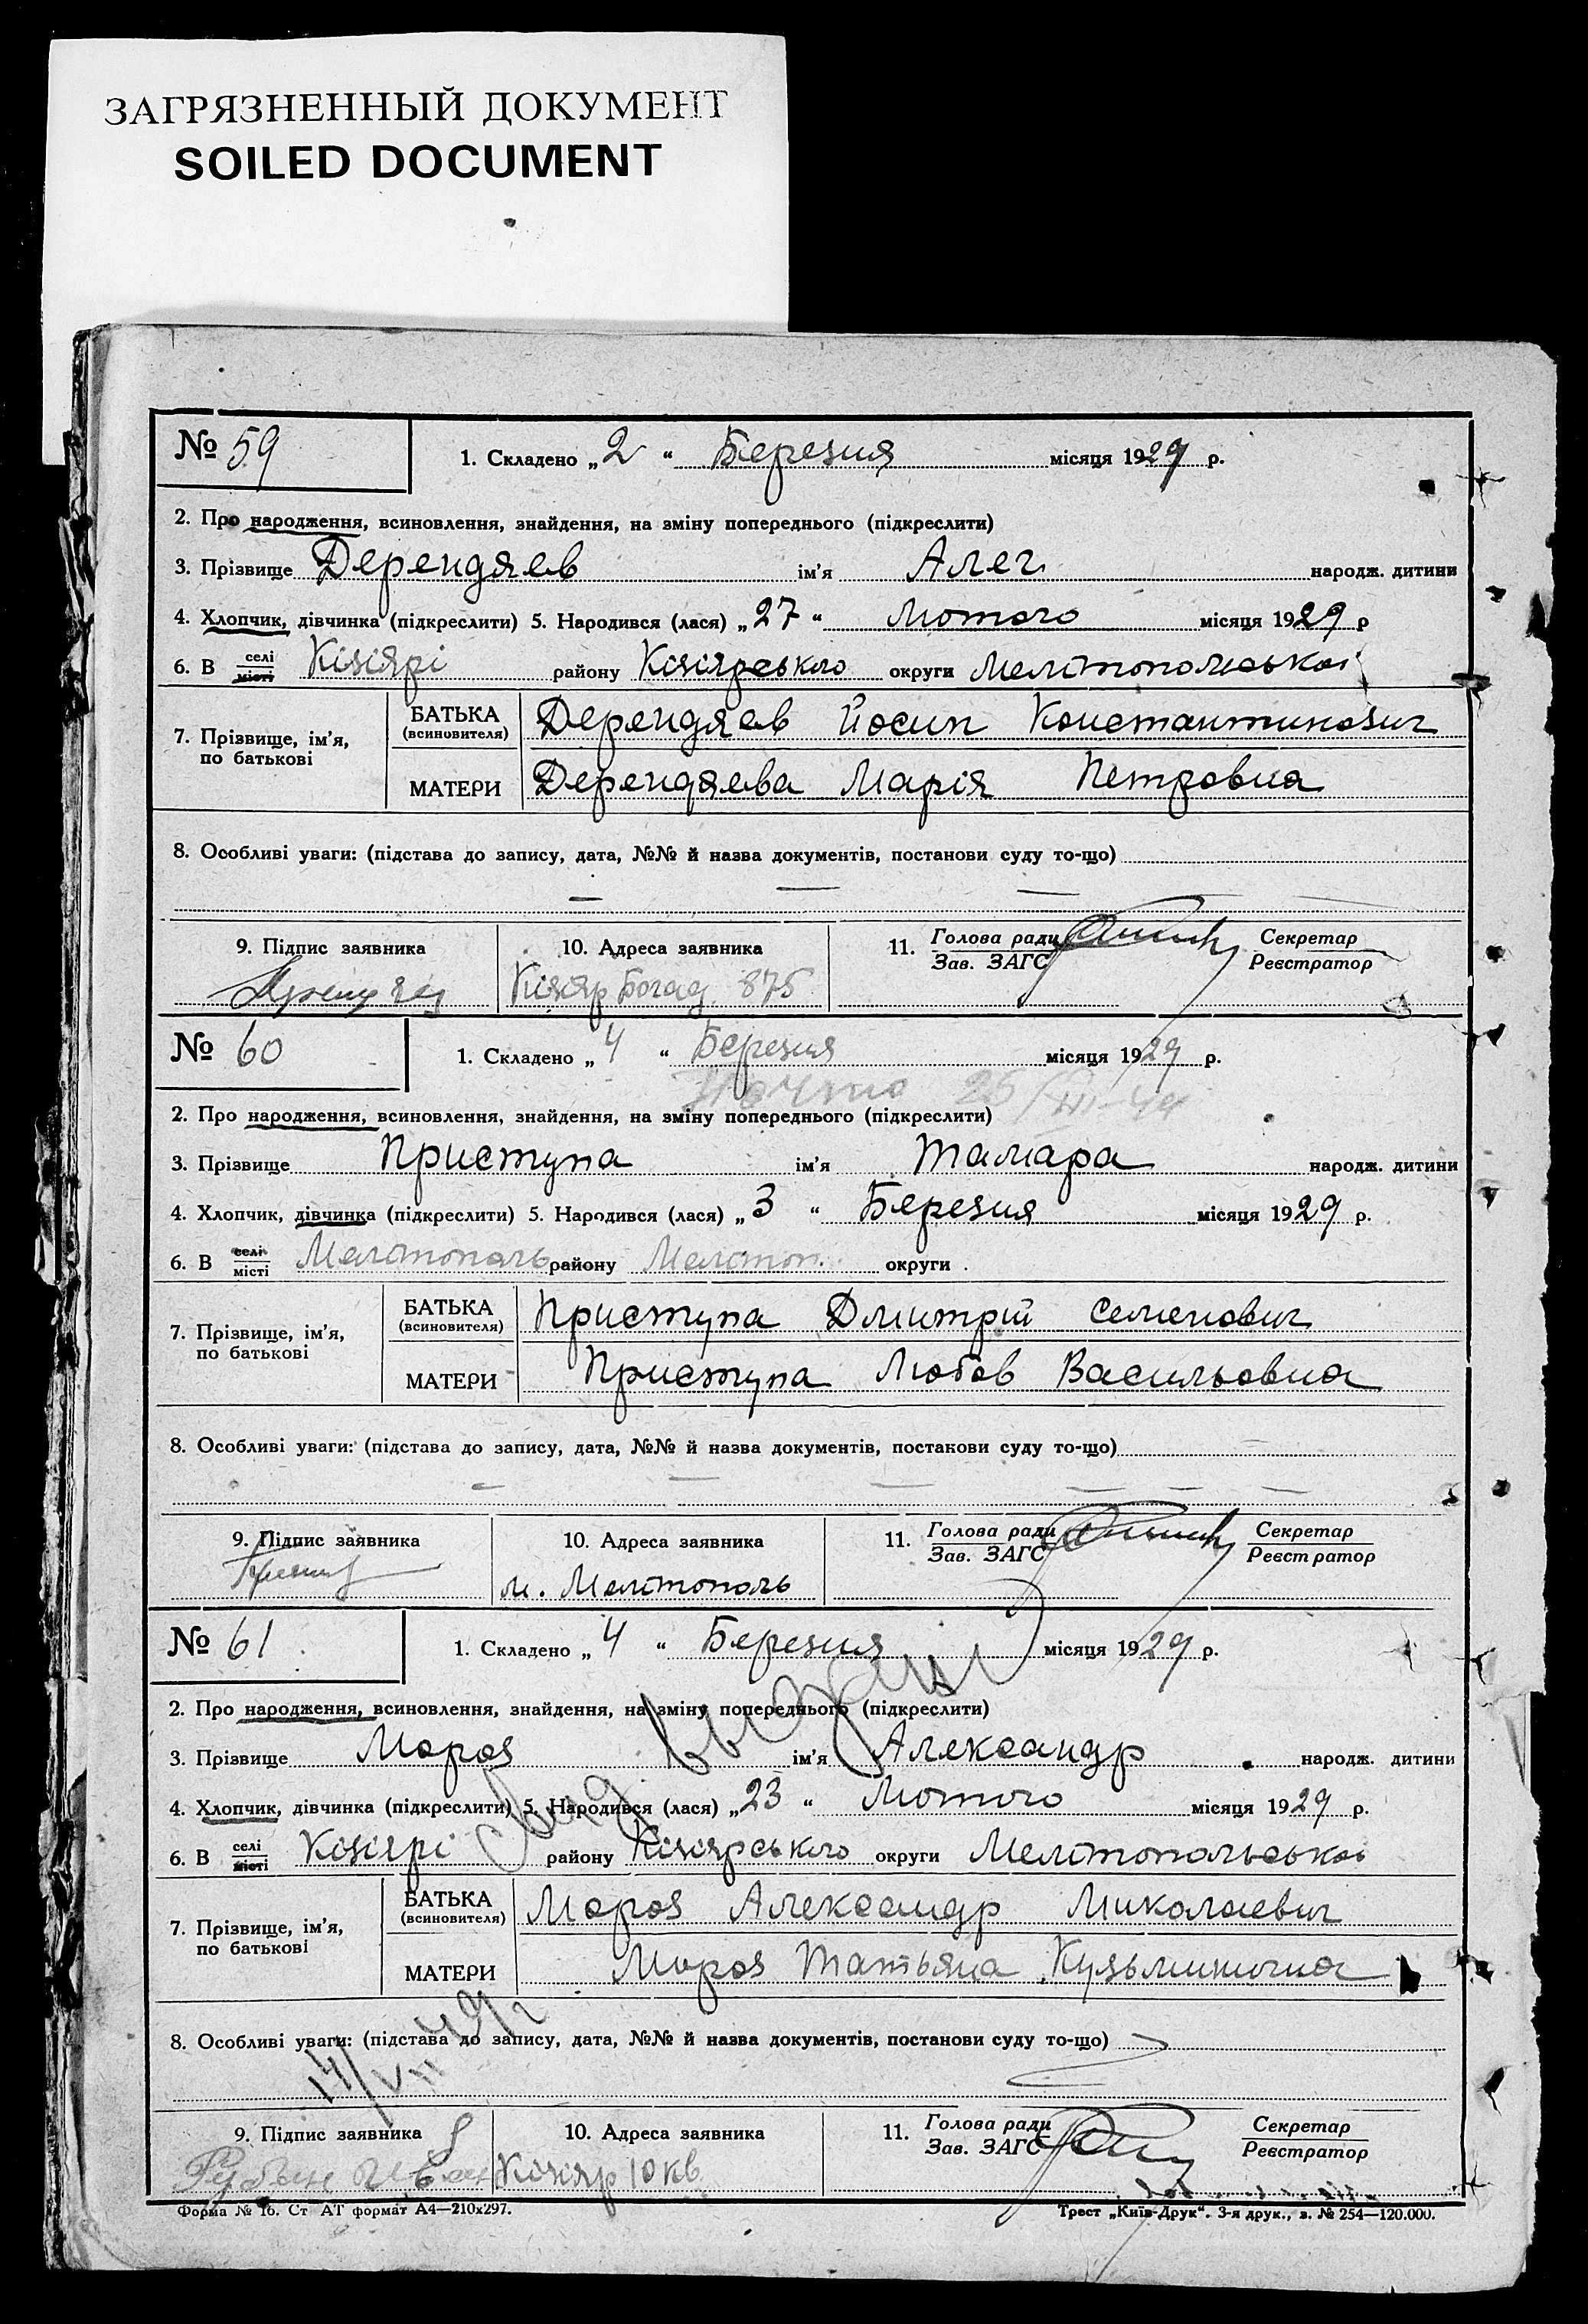 ЗАГРЯЗНЕННЫЙ ДОКУМЕНТ
SOILED DOCUMENT
№ 59 1. Складено „ 2 “ Березня місяця 1929 р.
2. Про народження, всиновлення, знайдення, на зміну попереднього (підкреслити)
3. Прізвище Дерендяев ім'я Алег народж. дитини
4. Хлопчик, дівчинка (підкреслити) 5. Народився (лася) „ 27 “ Лютого місяця 1929 р
6. В селі місті Кізіярі району Кізіярського округи Мелітопольської
7. Прізвище, ім'я, по батькові БАТЬКА (всиновителя) Дерендяев Йосип Константинович
МАТЕРИ Дерендяева Марія Петровна
8. Особливі уваги: (підстава до запису, дата, №№ й назва документів, постанови суду то-що)
9. Підпис заявника 10. Адреса заявника 11. Голова ради Зав. ЗАГС Секретар Реєстратор
Кізіяр Богад 875
№ 60 1. Складено „ 4 “ Березня місяця 1929 р.
2. Про народження, всиновлення, знайдення, на зміну попереднього (підкреслити)
3. Прізвище Приступа ім'я Тамара народж. дитини
4. Хлопчик, дівчинка (підкреслити) 5. Народився (лася) „ 3 “ Березня місяця 1929 р.
6. В селі місті Мелітополь району Мелітоп. округи .
7. Прізвище, ім'я, по батькові БАТЬКА (всиновителя) Приступа Дмитрій Семенович
МАТЕРИ Приступа Любов Васильовна
8. Особливі уваги: (підстава до запису, дата, №№ й назва документів, постакови суду то-що)
9. Підпис заявника 10. Адреса заявника 11. Голова ради Зав. ЗАГС Секретар Реєстратор
м. Мелітополь
№ 61 1. Складено „ 4 “ Березня місяця 1929 р.
2. Про народження, всиновлення, знайдення, на зміну попереднього (підкреслити)
3. Прізвище Мороз ім'я Александр народж. дитини
4. Хлопчик, дівчинка (підкреслити) 5. Народився (лася) „ 23 “ Лютого місяця 1929 р.
6. В селі місті Кізіярі району Кізіярського округи Мелітопольської
свид. выдан
7. Прізвище, ім'я, по батькові БАТЬКА (всиновителя) Мороз Александр Миколаевич
МАТЕРИ Мороз Татьяна Кузьминична
8. Особливі уваги: (підстава до запису, дата, №№ й назва документів, постанови суду то-що)
9. Підпис заявника 10. Адреса заявника 11. Голова ради Зав. ЗАГС Секретар Реєстратор
Кізіяр 10 кв.
Форма № 16. Ст АТ формат А4—210х297. Трест „Київ-Друк“. 3-я друк., з. № 254—120.000.